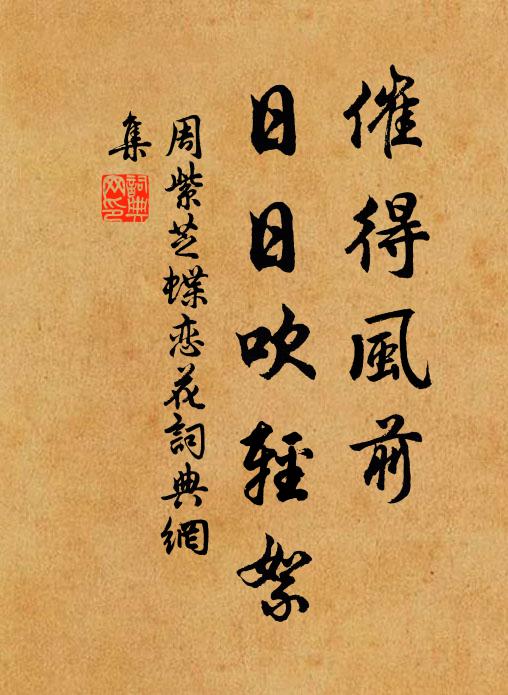 催得風前
日日吹輕絮
周紫芝蝶恋花詞典網
集
詞典
网印